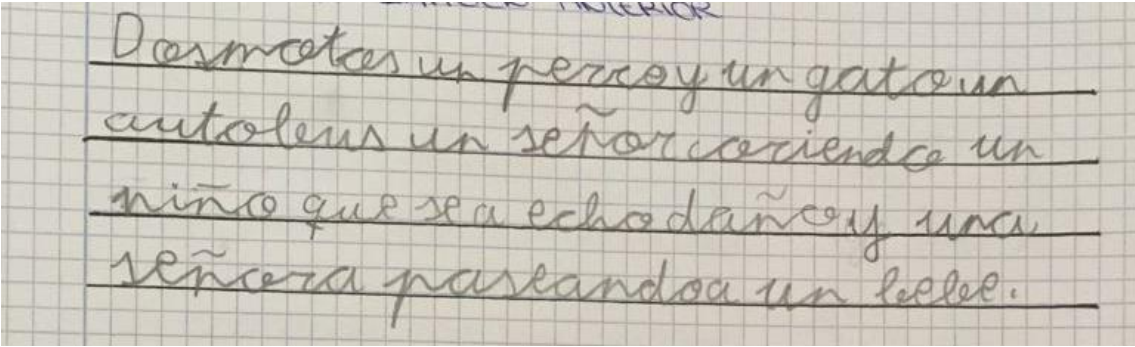 ANTERIOR
Dos motos un perro y un gato un
autobus un señor coriendo un
niño que se a echo daño y una
señora paseando a un bebe.